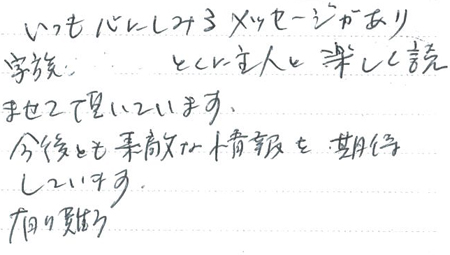 いつも心にしみるメッセージがあり
家族、とくに主人と楽しく読
ませて頂いています。
今後とも素敵な情報を期待
しています。
有り難う